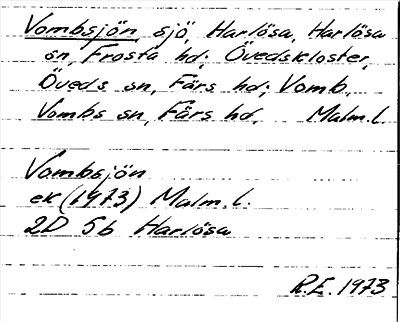 Vombsjön, sjö, Harlösa, Harlösa
sn, Frosta hd; Övedskloster,
Öveds sn, Färs hd; Vomb,
Vombs sn, Färs hd, Malm.l.
Vombsjön
ek (1973) Malm.l.
2D 5b Harlösa
R.E. 1973